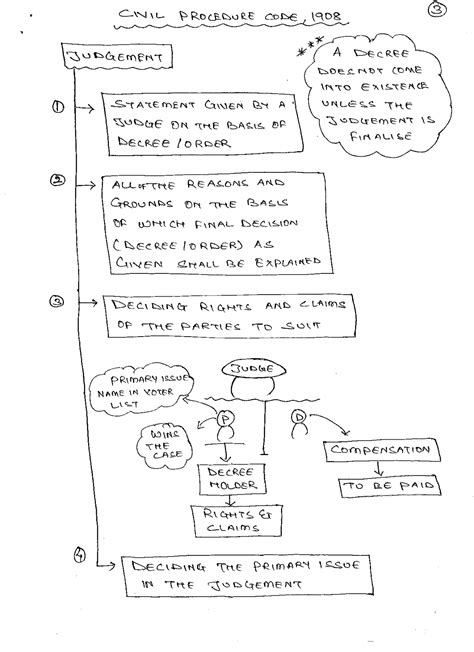 CIVIL PROCEDURE CODE, 1908
3
JUDGEMENT
***
A DECREE
DOES NOT COME
INTO EXISTENCE
UNLESS THE
JUDGEMENT IS
FINALISE
1
STATEMENT GIVEN BY A
JUDGE ON THE BASIS OF
DECREE / ORDER
2
ALL OF THE REASONS AND
GROUNDS ON THE BASIS
OF WHICH FINAL DECISION
(DECREE / ORDER) AS
GIVEN SHALL BE EXPLAINED
3
DECIDING RIGHTS AND CLAIMS
OF THE PARTIES TO SUIT
JUDGE
PRIMARY ISSUE
NAME IN VOTER
LIST
P
D
WINS
THE
CASE
COMPENSATION
DECREE
HOLDER
TO BE PAID
RIGHTS &
CLAIMS
4
DECIDING THE PRIMARY ISSUE
IN THE JUDGEMENT